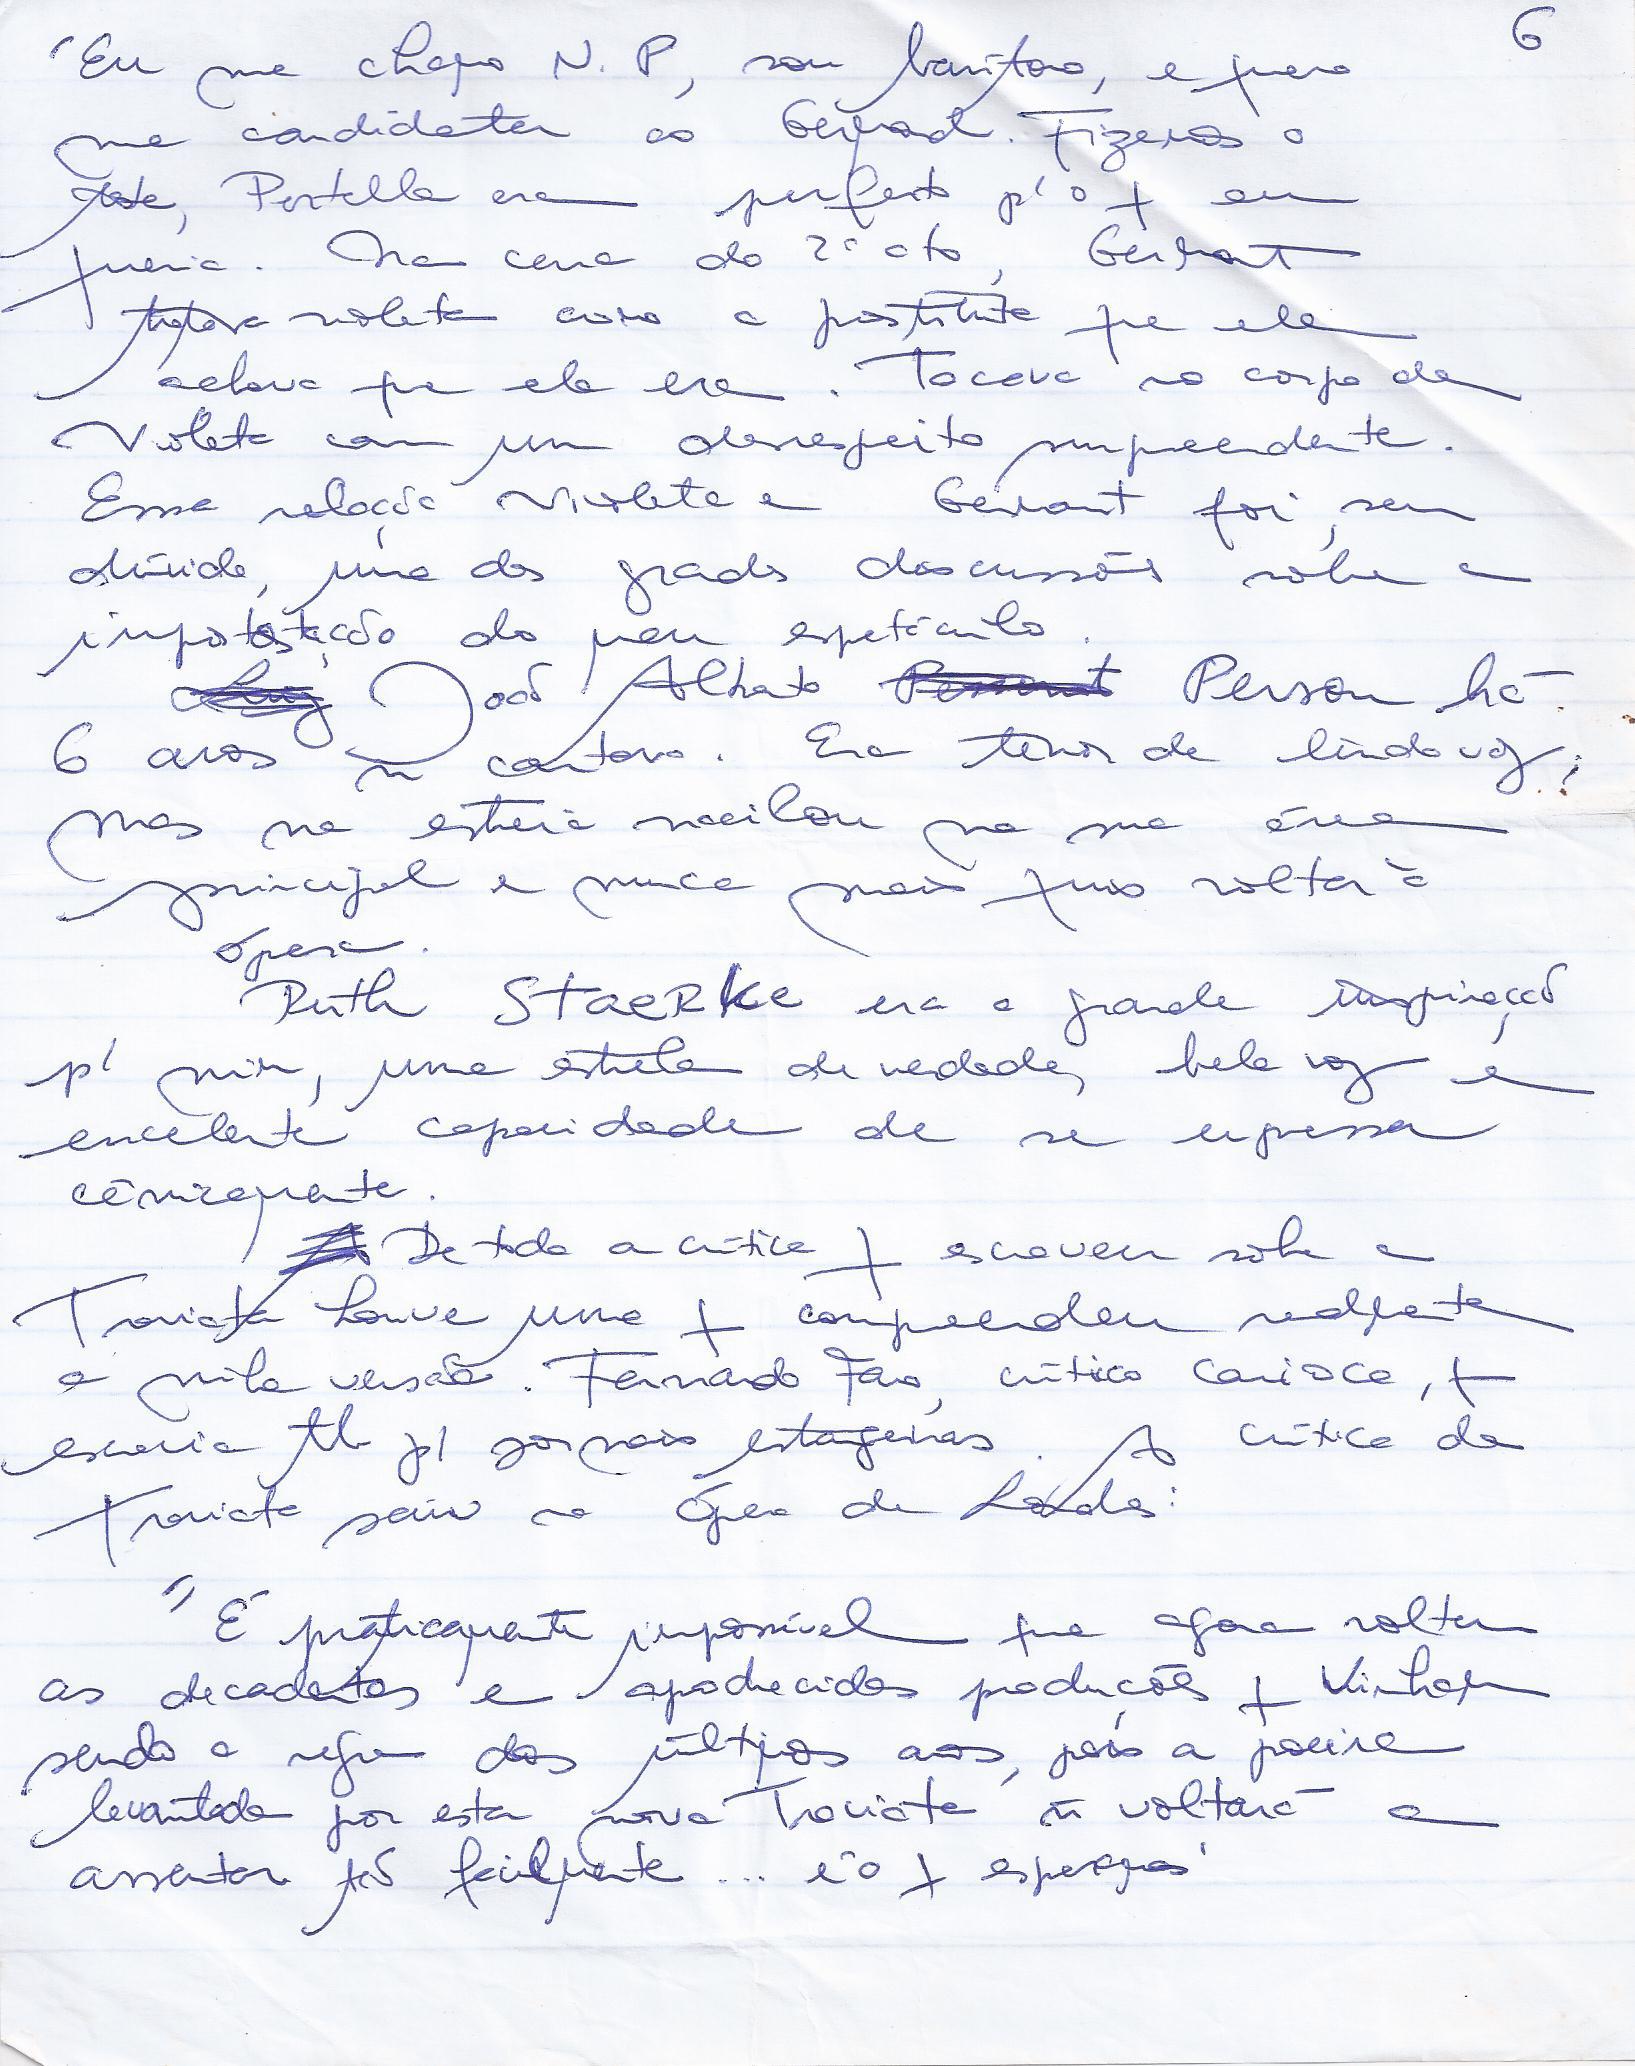 6
"Eu me chamo N. P, sou barítono, e quero
me candidatar ao Germont. Fizemos o
teste, Portella era perfeito p/ o q eu
queria. Na cena do 2º ato, Germont
tratava Violeta como a prostituta que ele
achava que ela era. Tocava no corpo da
Violeta com um desrespeito surpreendente.
Essa relação Violeta e Germont foi, sem
dúvida, uma das grandes discussões sobre a
impostação do meu espetáculo.
João Alberto Person há
6 anos ñ cantava. Era tenor de linda voz,
mas na estreia vacilou na sua ária
principal e nunca mais quis voltar à
ópera.
Ruth StaeRke era a grande inspiração
p/ mim, uma estrela de verdade, bela voz e
excelente capacidade de se expressar
cênicamente.
De toda a crítica q escreveu sobre a
Traviata houve uma q compreendeu realmente
a minha versão. Fernando, crítico carioca, q
escrevia tb p/ jornais estrangeiros. A crítica da
Traviata saiu na Ópera de Londres:
" É práticamente impossível que agora voltem
as decadentes e apodrecidas produções q vinham
sendo a regra dos últimos anos, pois a poeira
levantada por esta nova Traviata ñ voltará a
assentar tão facilmente ... é o q esperamos"